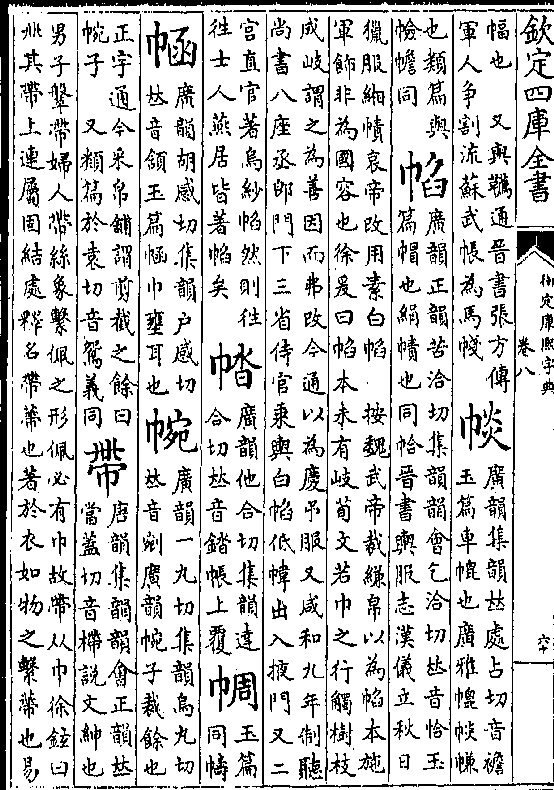 欽定四庫全書
御定康熙字典
卷八
六十
幅也 又與韉通晉書張方傳
軍人爭割流蘇武帳為馬㡞
⿰巾炎
廣韻集韻𠀤處占切音襜
玉篇車幰也廣雅幰⿰巾炎㡘
也類篇與
㡘幨同
⿰巾臽
廣韻正韻苦洽切集韻韻會乞洽切𠀤音恰玉
篇帽也絹幘也同帢晉書輿服志漢儀立秋日
獵服緗幘哀帝改用素白⿰巾臽 按魏武帝裁縑帛以為⿰巾臽本施
軍飾非為國容也徐爰曰⿰巾臽本未有岐荀文若巾之行觸樹枝
成岐謂之為善因而弗改今通以為慶弔服又咸和九年制聽
尚書八座丞郎門下三省侍官乘輿白⿰巾臽低幃出入掖門又二
宮直官著烏紗⿰巾臽然則往
往士人燕居皆著⿰巾臽矣
⿰巾沓
廣韻他合切集韻達
合切𠀤音錔帳上覆
⿰巾周
玉篇
同幬
⿰巾函
廣韻胡感切集韻户感切
𠀤音頷玉篇⿰巾函巾壅耳也
帵
廣韻一丸切集韻烏丸切
𠀤音剜廣韻帵子裁餘也
正字通今采帛鋪謂剪截之餘曰
帵子 又類篇於袁切音鴛義同
帶
唐韻集韻韻會正韻𠀤
當蓋切音㯂說文紳也
男子鞶帶婦人帶絲象繫佩之形佩必有巾故帶从巾徐鉉曰
此其帶上連屬固結處釋名帶蔕也著於衣如物之繫蔕也易